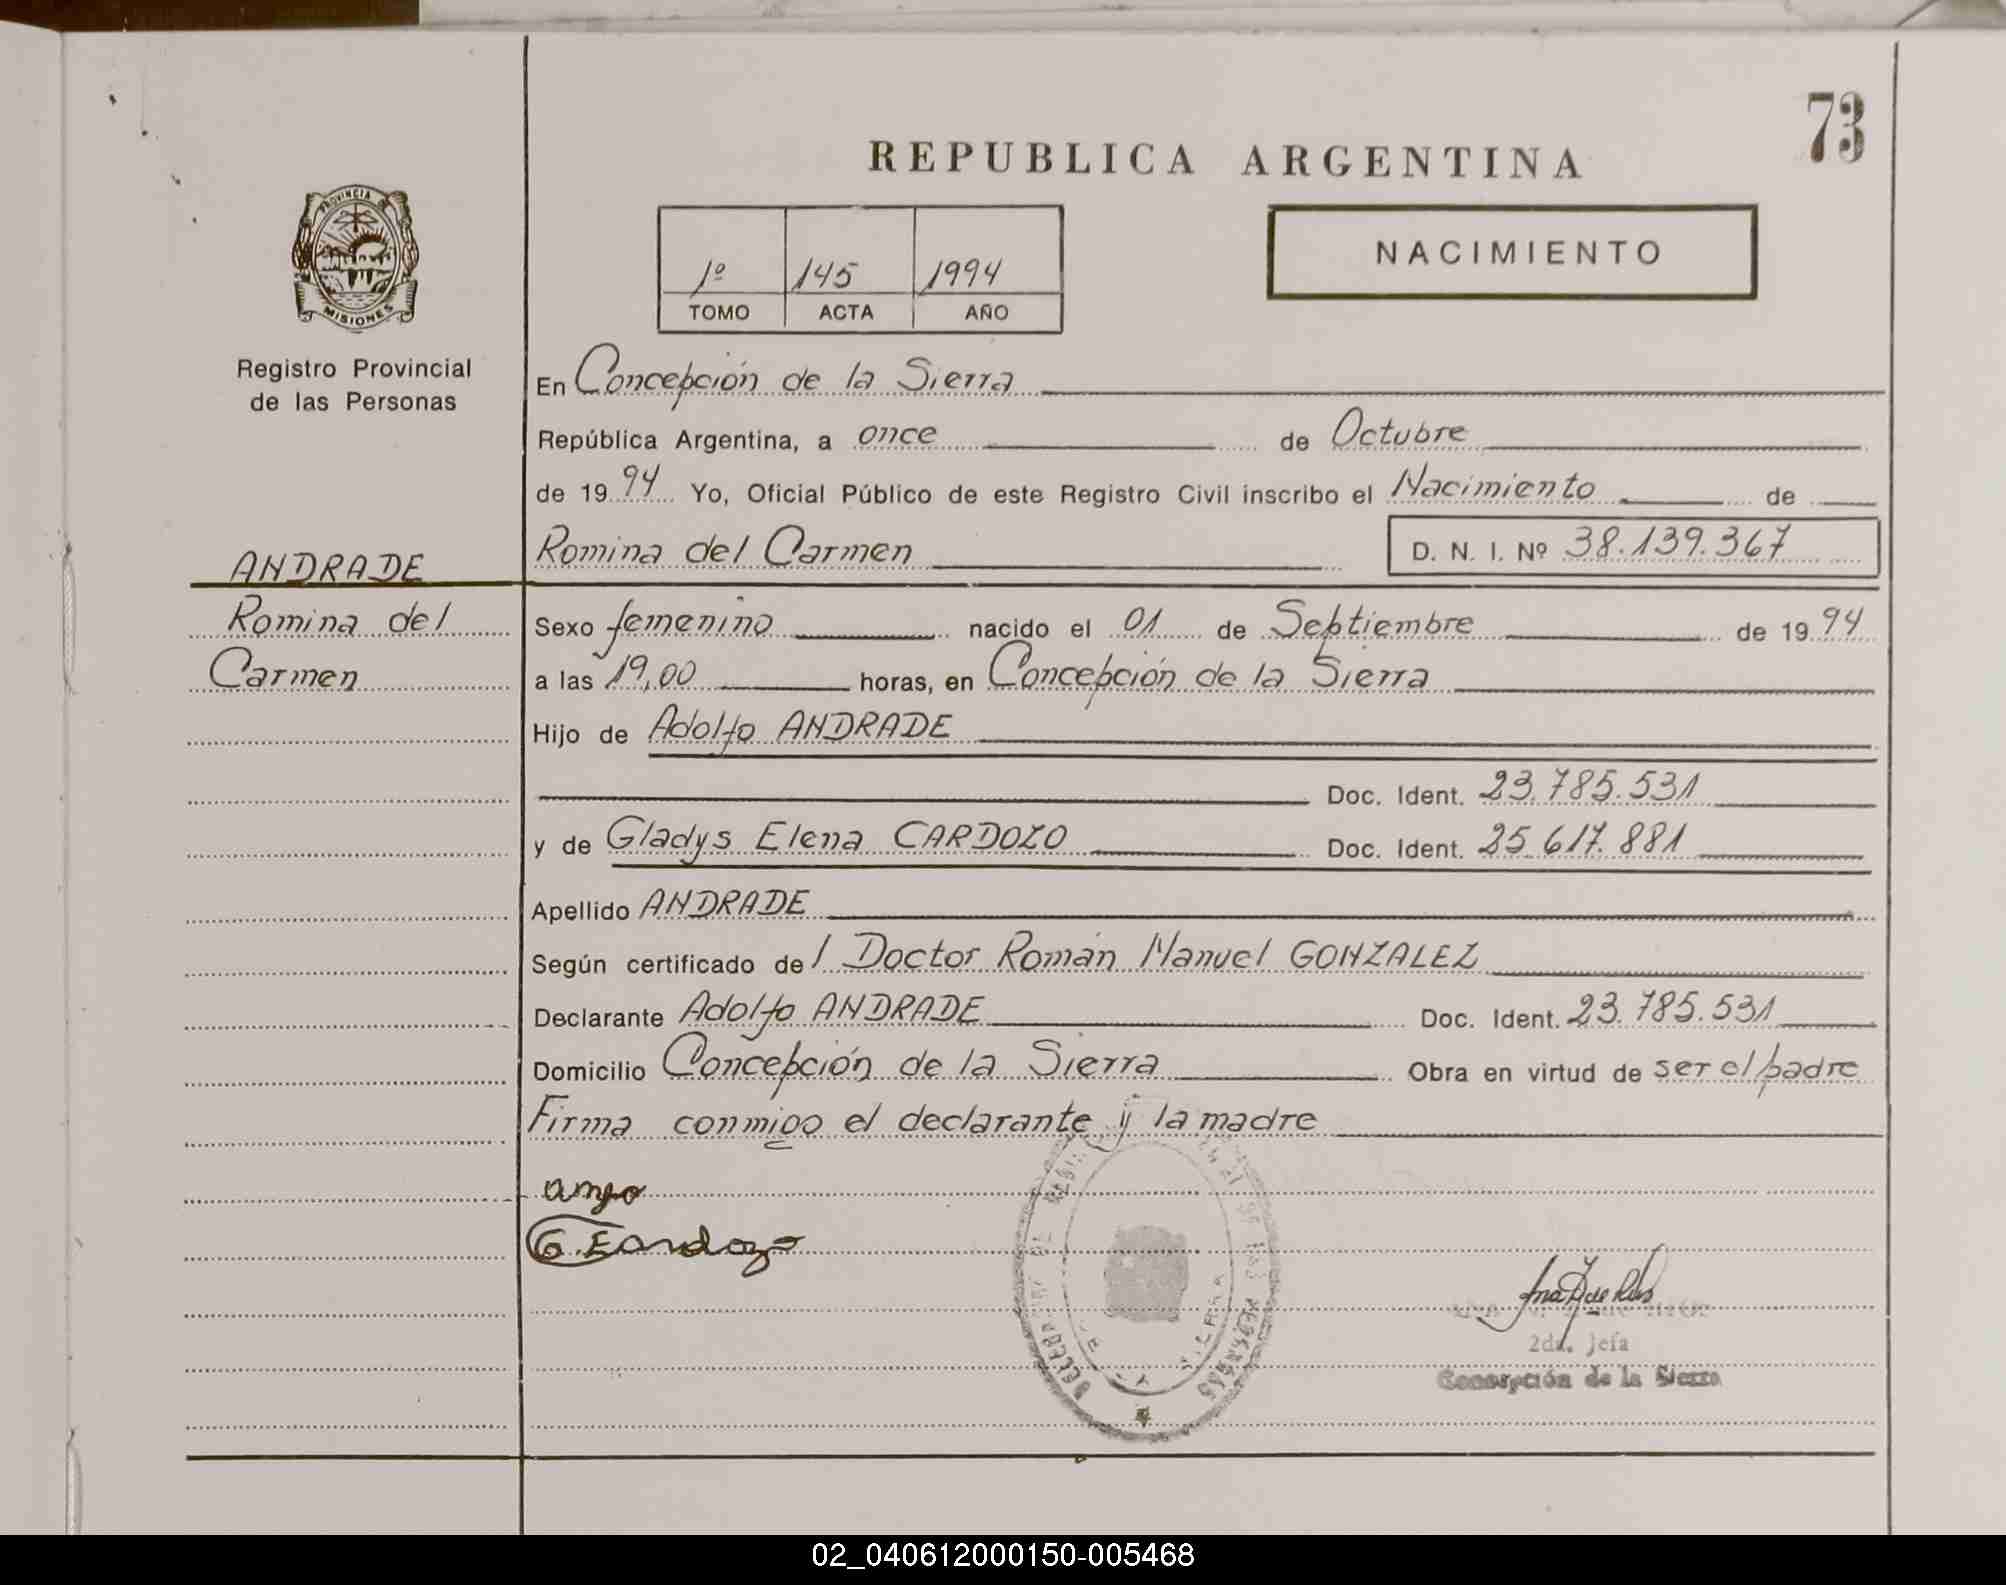 73
REPUBLICA ARGENTINA
PROVINCIA DE
MISIONES
1º 145 1994
TOMO ACTA AÑO
NACIMIENTO
Registro Provincial
de las Personas
En Concepción de la Sierra
República Argentina, a once de Octubre
de 1994 Yo, Oficial Público de este Registro Civil inscribo el Nacimiento de
ANDRADE Romina del Carmen D. N. I. Nº 38.139.367
Romina del Sexo femenino nacido el 01 de Septiembre de 1994
Carmen a las 19,00 horas, en Concepción de la Sierra
Hijo de Adolfo ANDRADE
Doc. Ident. 23.785.531
y de Gladys Elena CARDOZO Doc. Ident. 25.617.881
Apellido ANDRADE
Según certificado del Doctor Román Manuel GONZALEZ
Declarante Adolfo ANDRADE Doc. Ident. 23.785.531
Domicilio Concepción de la Sierra Obra en virtud de ser el padre
Firma conmigo el declarante y la madre
G. E Cardozo
2da. Jefa
Concepción de la Sierra
02_040612000150-005468